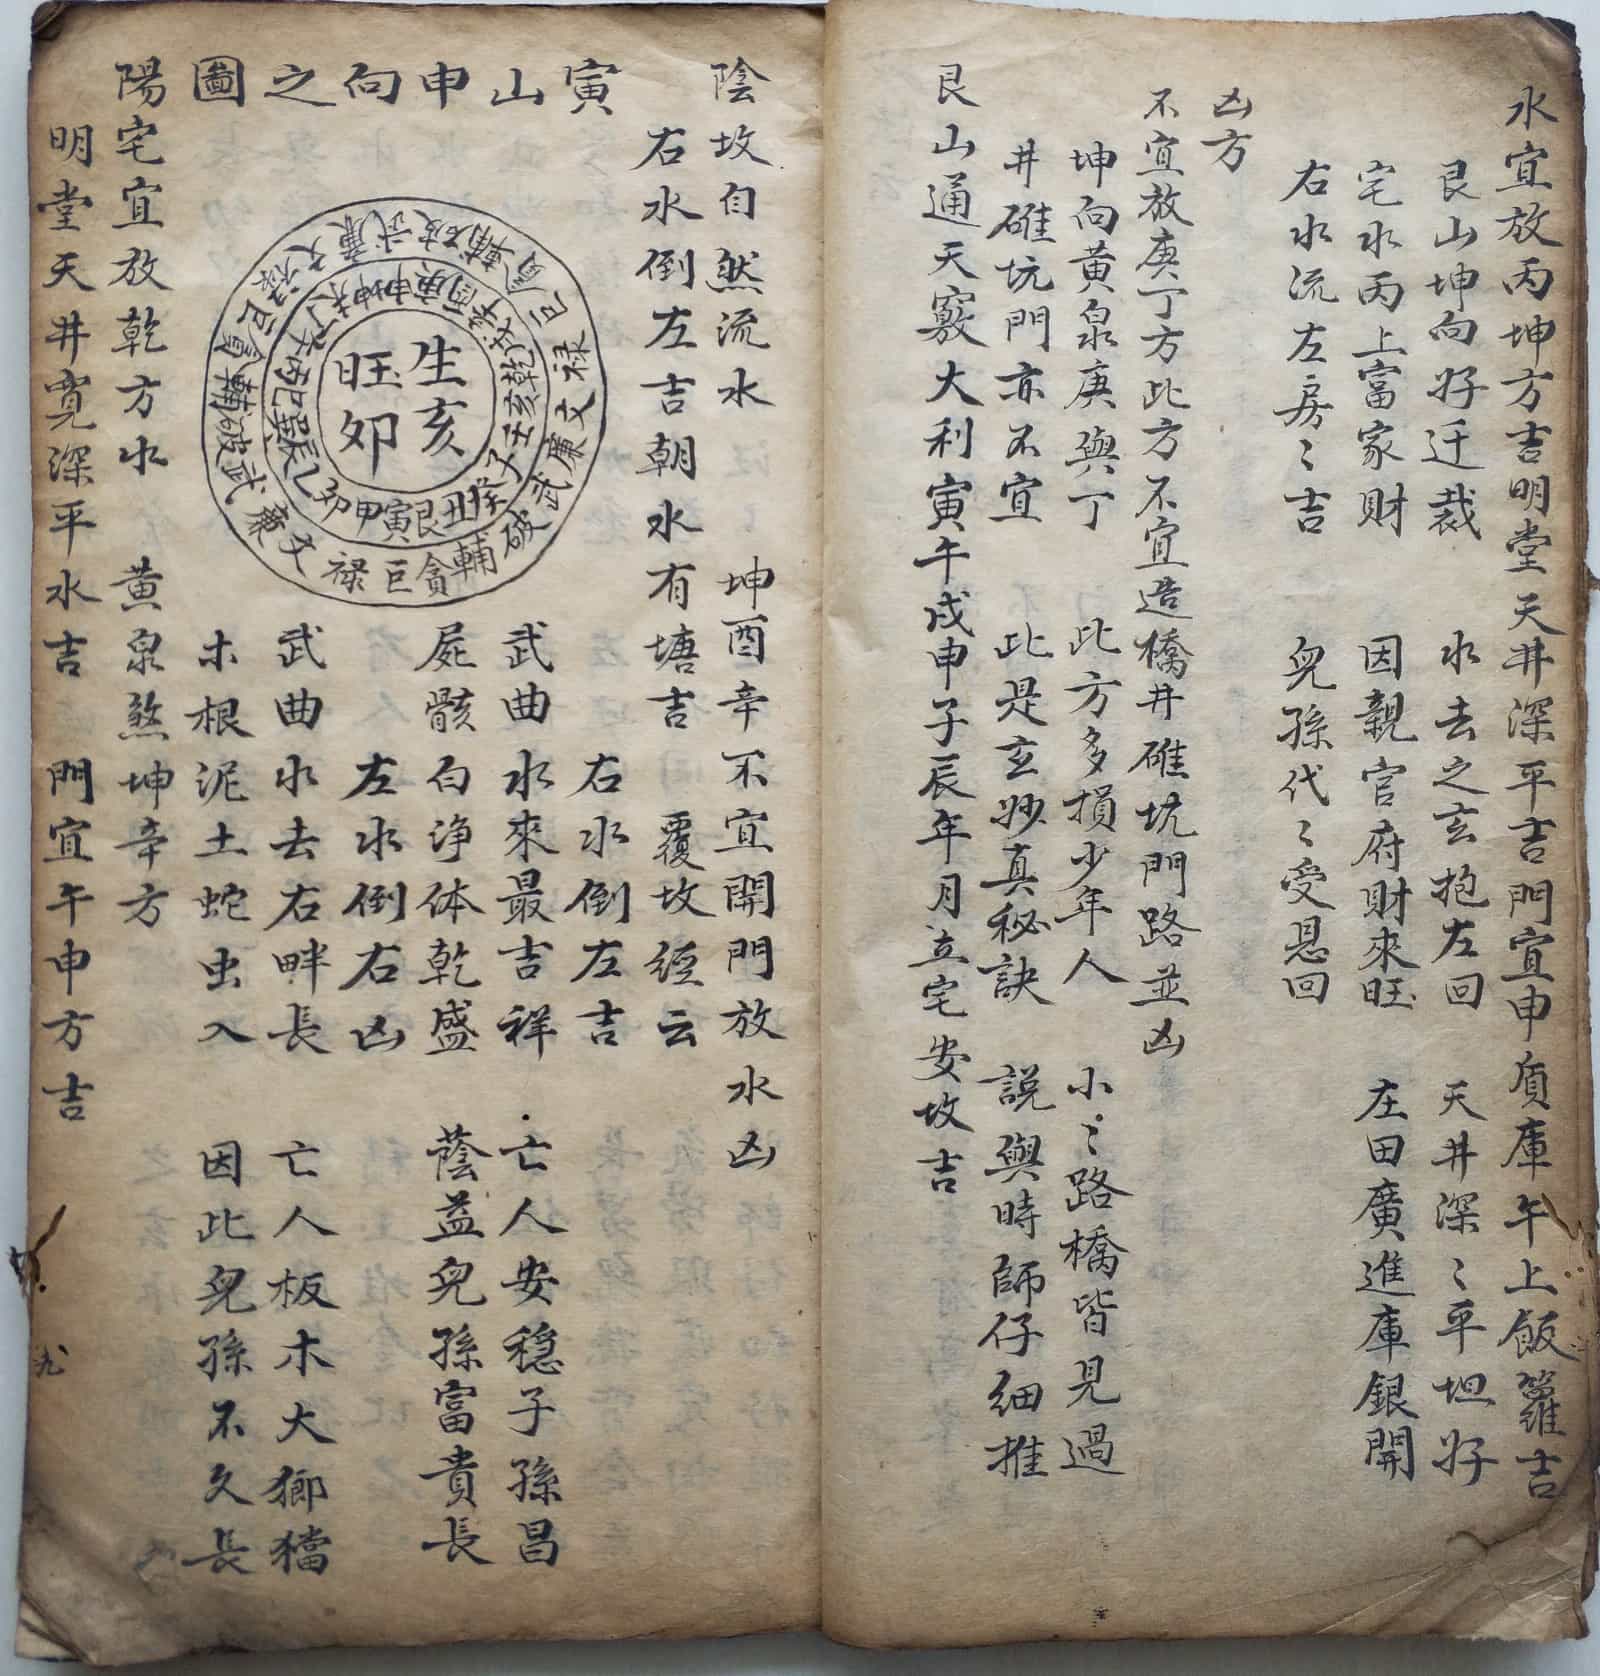 水宜放丙坤方吉明堂天井深平吉門宜申庚庫午上飯籮吉
艮山坤向好迁裁 水去之玄抱左回 天井深〻平坦好
宅水丙上富家財 因親官府財來旺 庄田廣進庫銀開
右水流左房〻吉 兒孫代〻受恩回
凶方
不宜放庚丁方此方不宜造橋井碓坑門路並凶
坤向黃泉庚與丁 此方多損少年人 小〻路橋皆見過
井碓坑門亦不宜 此是玄妙真秘訣 說與時師仔細推
艮山通天竅大利寅午戌申子辰年月立宅安坟吉
陰坟自然流水 坤酉辛不宜開門放水凶
右水倒左吉朝水有塘吉 覆坟經云
寅山申向之圖
右水倒左吉
武曲水來最吉祥 亡人安穩子孫昌
屍骸白净体乾盛 蔭益兒孫富貴長
左水倒右凶
武曲水去右畔長 亡人板木大鄉檔
木根泥土蛇虫入 因此兒孫不久長
生亥
旺卯
壬子癸丑艮寅甲卯乙辰巽巳丙午丁未坤申庚酉辛戌乾亥
破輔貪巨祿文廉武破輔貪巨祿文廉武破輔貪巨祿文廉武
陽宅宜放乾方水 黃泉煞坤辛方
明堂天井寬深平水吉 門宜午申方吉
九